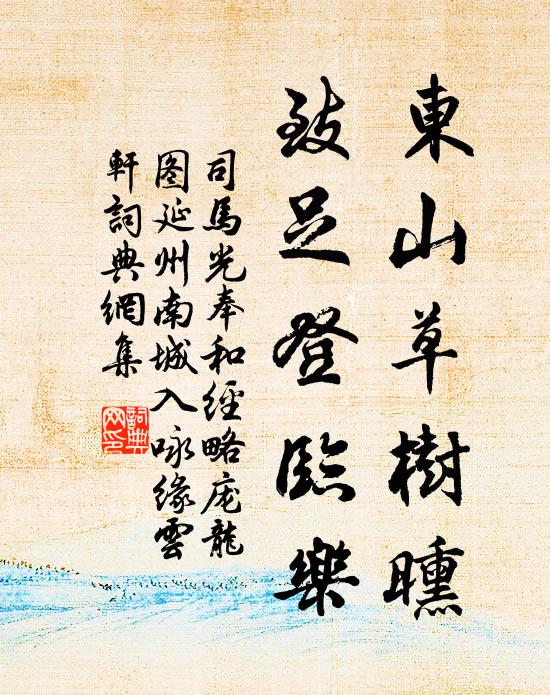 東山草樹曛
致足登臨樂
司馬光奉和經略庞龍
图延州南城入咏緣雲
軒詞典網集
詞典
网印